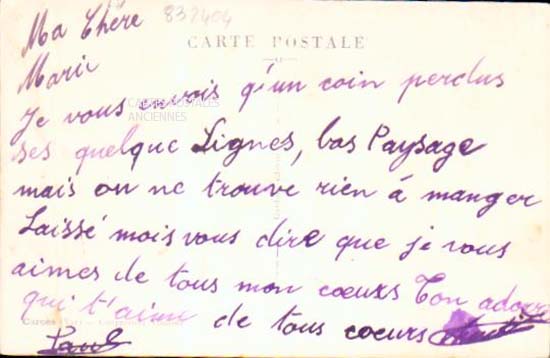 Ma Chère 837404
CARTE POSTALE
Marie
Je vous envois q'un coin perdus
CARTES POSTALES
ANCIENNES
ses quelque Lignes, bas Paysage
mais on ne trouve rien à manger
Laissé mois vous dire que je vous
aimes de tous mon coeurs Ton adorer
qui t'aime de tous coeurs
Carces (Var)
Paul